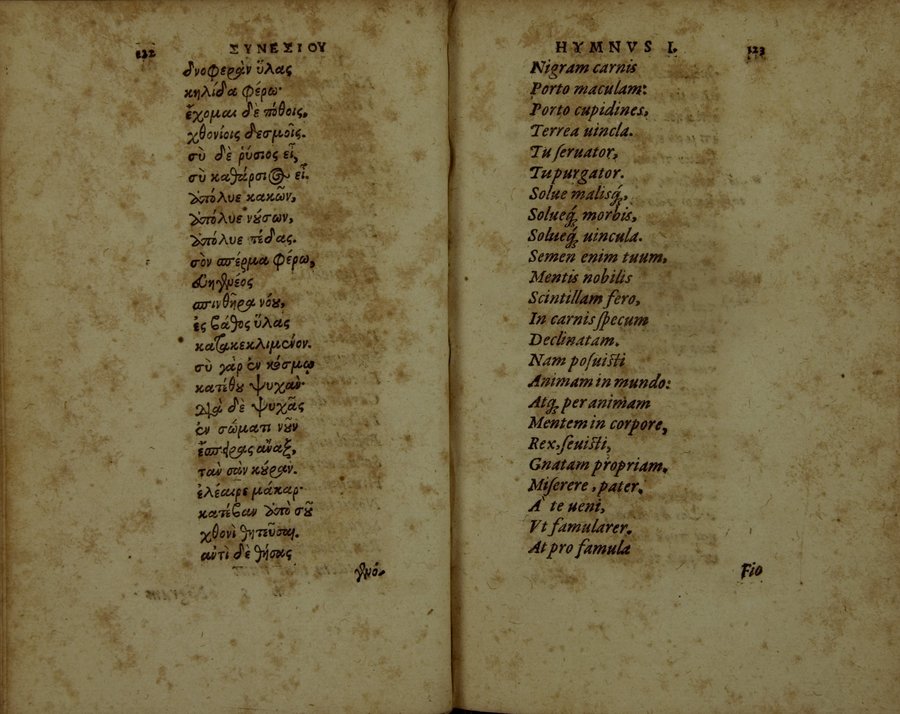 122 ΣΥΝΕΣΙΟΥ
δνοφερὰν ὕλας
κηλίδα φέρω·
ἔχομαι δὲ πόθοις,
χθονίοις δεσμοῖς.
σὺ δὲ ῥύσιος εἶ,
σὺ καθάρσιος εἶ.
ἀπόλυε κακῶν,
ἀπόλυε νόσων,
ἀπόλυε πέδας.
σὸν σπέρμα φέρω,
εὐηγενέος
σπινθῆρα νόου,
ἐς βάθος ὕλας
κατακεκλιμένον.
σὺ γὰρ ἐν κόσμῳ
κατέθου ψυχάν·
διὰ δὲ ψυχᾶς
ἐν σώματι νοῦν
ἔσπειρας ἄναξ,
τὰν σὰν κούραν.
ἐλέαιρε μάκαρ·
κατέβαν ἀπὸ σοῦ
χθονὶ θητεῦσαι.
ἀντὶ δὲ θήσας
γενό-
HYMNVS I. 123
Nigram carnis
Porto maculam:
Porto cupidines,
Terrea uincla.
Tu seruator,
Tu purgator.
Solue malisq́;,
Solueq́; morbis,
Solueq́; uincula.
Semen enim tuum,
Mentis nobilis
Scintillam fero,
In carnis specum
Declinatam.
Nam posuisti
Animam in mundo:
Atq́; per animam
Mentem in corpore,
Rex, seuisti,
Gnatam propriam.
Miserere, pater.
A` te ueni,
Vt famularer.
At pro famula
Fio